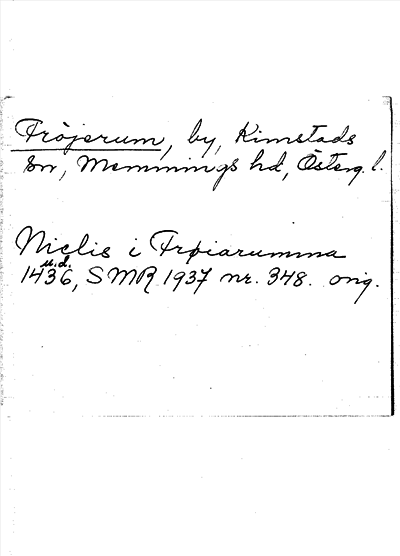 Fröjerum, by, Kimstads
sn, Memmings hd, Österg. l.
Niclis i Frøiarumma
u.d.
1436, SMR 1937 nr. 348. orig.